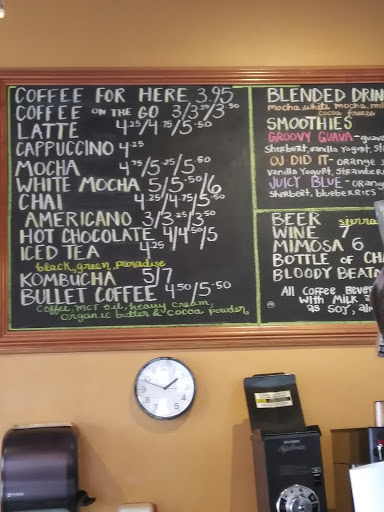 COFFEE FOR HERE 3.95
COFFEE ON THE GO 3/3.25/3.50
LATTE 4.25/4.75/5.50
CAPPUCCINO 4.25
MOCHA 4.75/5.25/5.50
WHITE MOCHA 5/5.50/6
CHAI 4.25/4.75/5.50
AMERICANO 3/3.25/3.50
HOT CHOCOLATE 4/4.50/5
ICED TEA 4.25
black, green, paradise
KOMBUCHA 5/7
BULLET COFFEE 4.50/5.50
Coffee, MCT oil, heavy cream,
organic butter & cocoa powder
BLENDED DRIN
mocha, white mocha,
cocoa freeze
SMOOTHIES
GROOVY GUAVA - guava
Sherbert, vanilla yogurt, st
OJ DID IT - orange
vanilla yogurt, strawberr
JUICY BLUE - orange
Sherbert, blueberries
BEER sierra
WINE 7
MIMOSA 6
BOTTLE OF CH
BLOODY BEAT
All Coffee Bever
with Milk
as soy, al